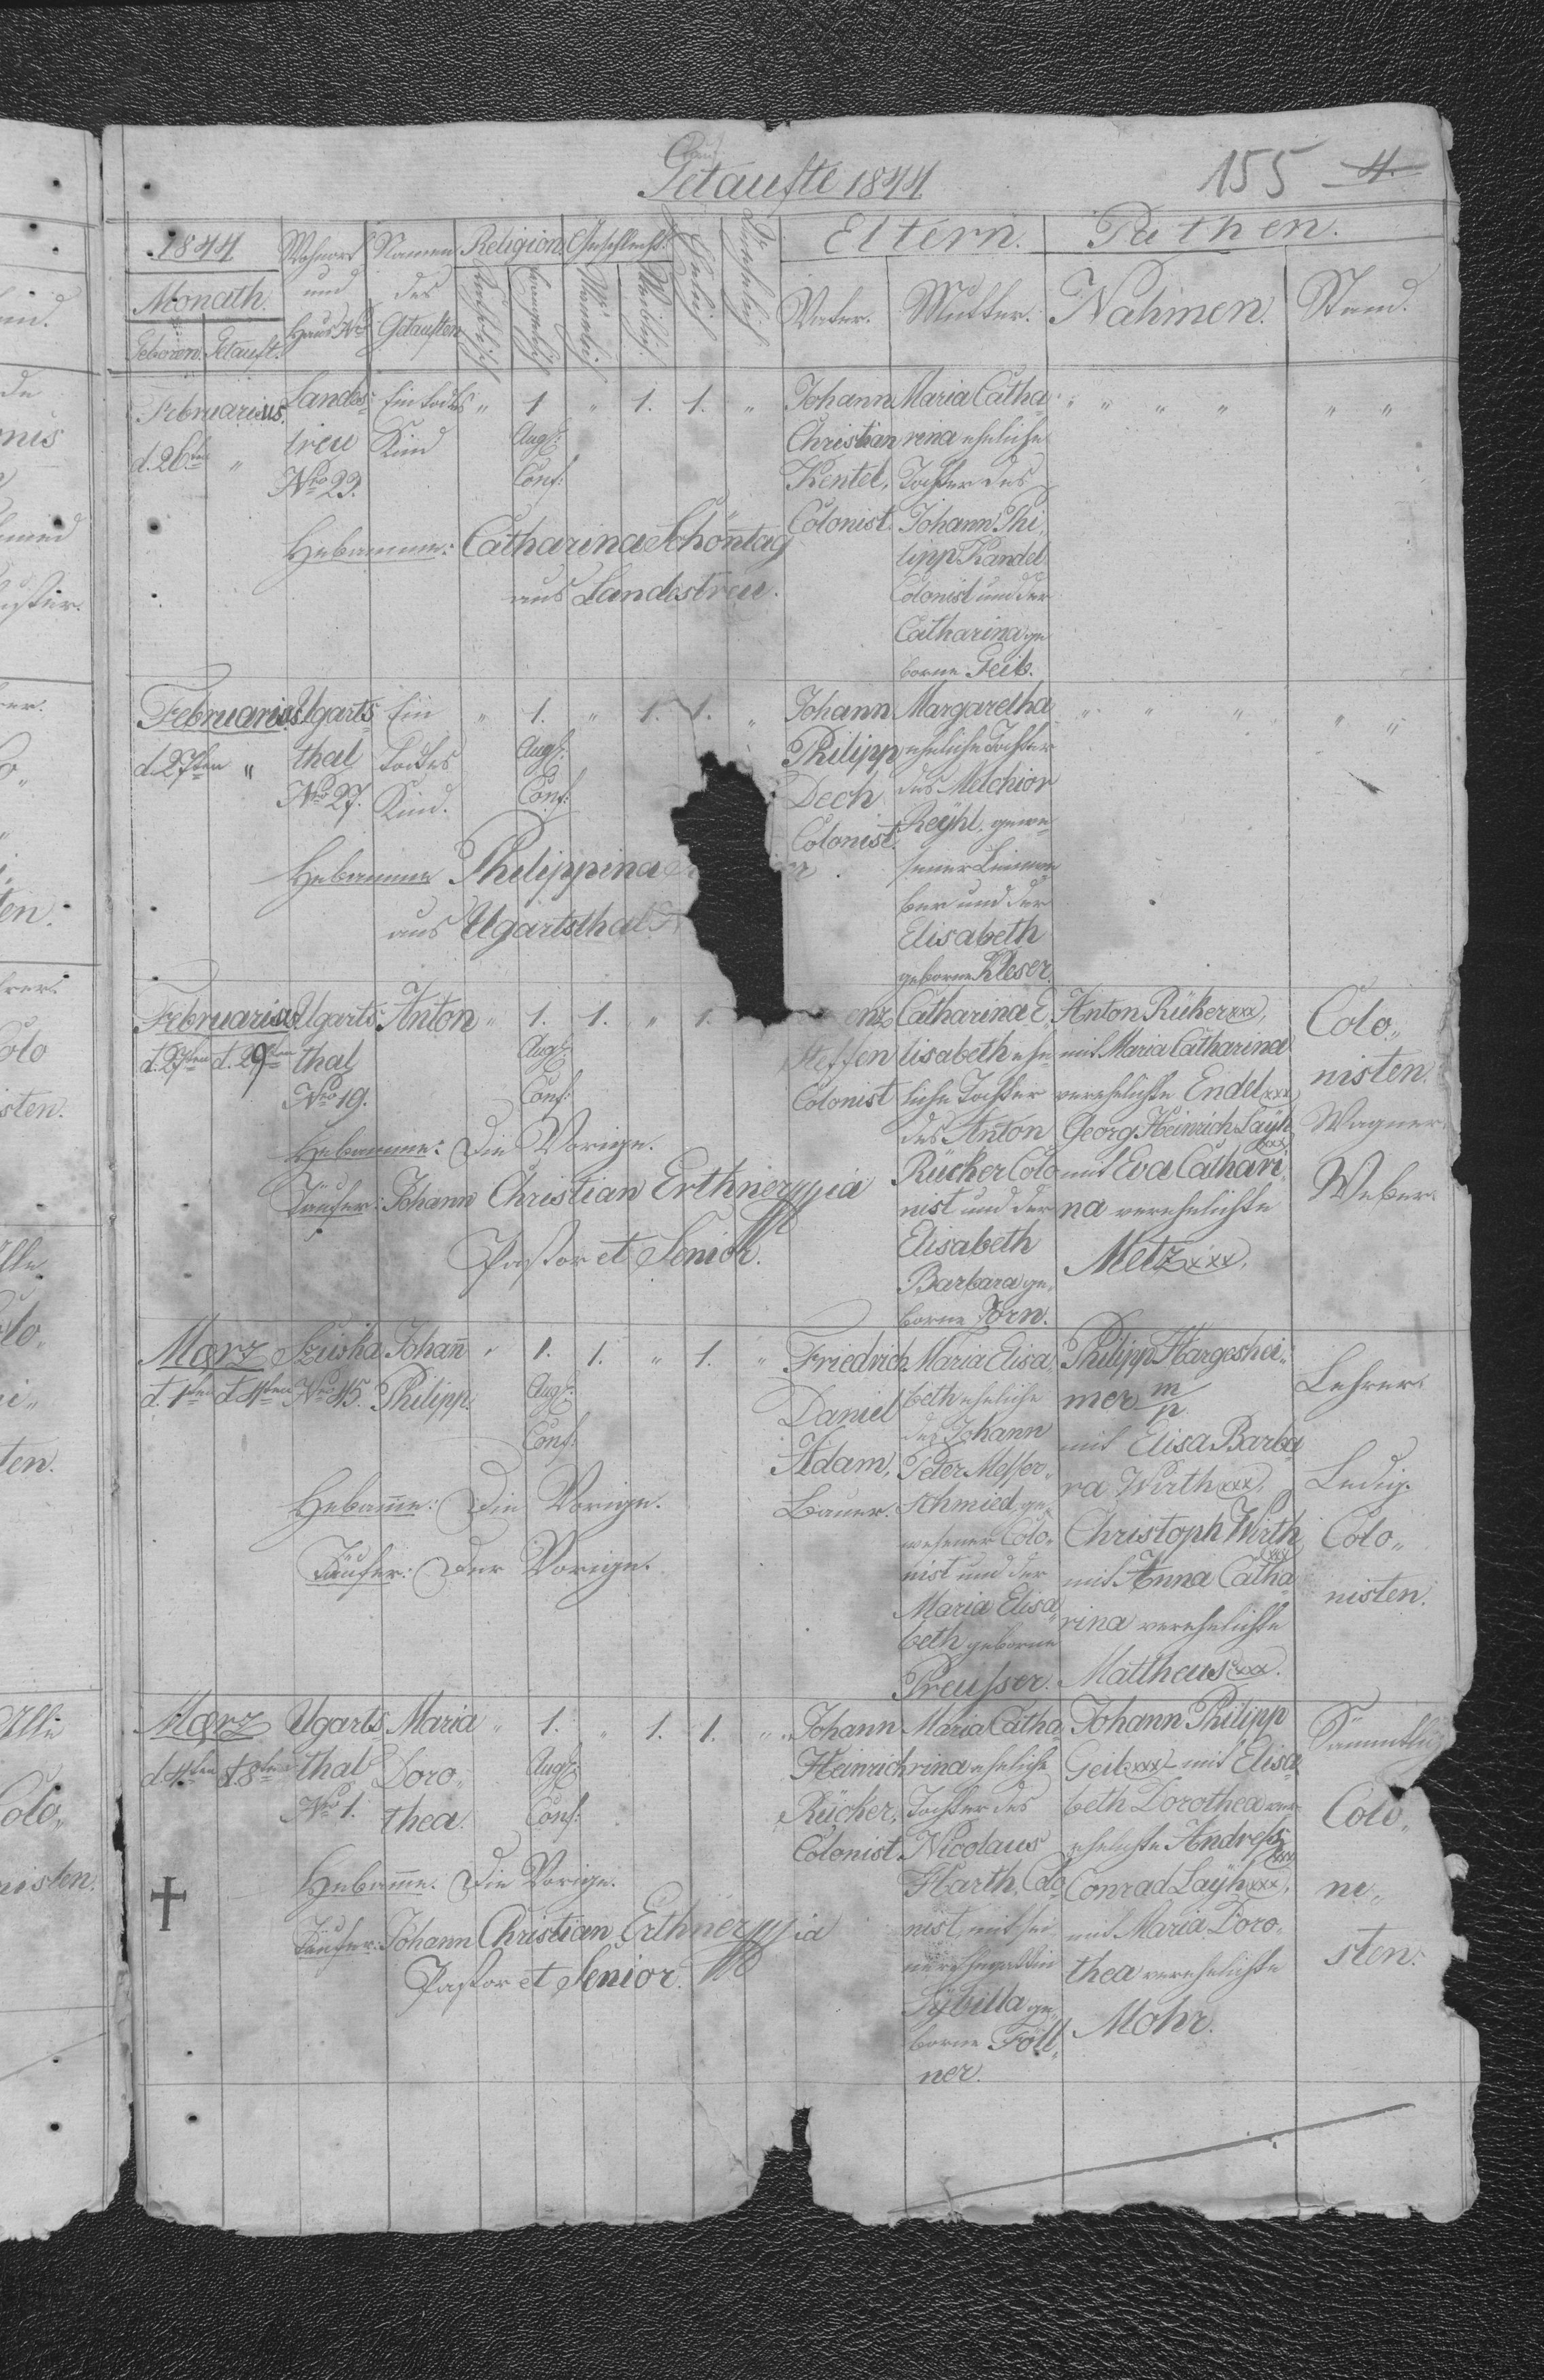 Getaufte 1844
155 4.
1844 Wohnort und Haus Nro Namen des Getauften Religion. Geschlecht. Ehelich Unehelich Eltern. Pathen.
Monath.
Geboren. Getauft. Katholisch Evangelisch Männlich Weiblich. Vater. Mutter. Nahmen. Stand.
Februarius.
d. 26ten "
Landes-
treu
Nro 23.
Ein todtes
Kind
" 1 " 1. 1. "
Augs:
Conf:
Johann
Christian
Kentel,
Colonist.
Maria Catha-
rina eheliche
Tochter des
Johann Phi-
lipp Kandel
Colonist und der
Catharina ge
borne Geib.
" " " " " "
Hebamme: Catharina Schöntag
aus Landestreu.
Februarius
d. 27ten "
Ugarts
thal
Nro 27.
Ein
todtes
Kind.
" 1. " 1. 1. "
Augs:
Conf:
Johann
Philipp
Dech
Colonist.
Margaretha
eheliche Tochter
des Melchior
Reÿhl, gewe-
sener
ber und der
Elisabeth
geborne Kleser.
" " " " "
Hebamme Philippina
aus Ugartsthal
Februarius
d. 27ten d. 29ten
Ugarts-
thal
Nro 19.
Anton
" 1. 1. " 1.
Augs:
Conf:
enz
Steffen
Colonist
Catharina E-
lisabeth ehe-
liche Tochter
des Anton
Rücker Colo
nist und der
Elisabeth
Barbara ge-
borne Jorn.
Anton Rüker xxx,
mit Maria Catharina
verehelichte Endel xxx
Georg Heinrich Laÿh
xxx
mit Eva Cathari-
na verehelichte
Metz xxx.
Colo-
nisten.
Wagner
Weber.
Hebamme: Die Vorige.
Täufer: Johann Christian Erthner mpia
Pastor et Senior.
Marz
d. 1ten d. 4ten
Szuska
Nro 45.
Johañ
Philipp
" 1. 1. " 1. "
Augs:
Conf:
Friedrich
Daniel
Adam,
Bauer.
Maria Elisa-
beth eheliche
des Johann
Peter Messer-
schmied ge-
wesener Colo-
nist und der
Maria Elisa-
beth geborne
Preusser.
Philipp Hargeshei-
mer m/p
mit Elisa Barba
ra Wirth xxx,
Christoph Wirth
xxx
mit Anna Catha
rina verehelichte
Mattheus xxx.
Lehrer.
Ledig.
Colo-
nisten.
Hebam̃e: Die Vorige.
Täufer: Der Vorige.
Marz
d. 4ten d. 8ten
Ugarts
thal
Nro 1.
Maria
Doro-
thea.
" 1. " 1. 1. "
Augs:
Conf:
Johann
Heinrich
Rücker,
Colonist.
Maria Catha-
rina eheliche
Tochter des
Nicolaus
Harth, Colo
nist, mit sei
ner Ehegattin
Sÿbilla ge-
borne Föll-
ner.
Johann Philipp
Geib xxx mit Elisa
beth Dorothea ver-
ehelichte Andress
xxx
Conrad Laÿh xxx,
mit Maria Doro-
thea verehelichte
Mohr.
Sämmtlich
Colo-
ni-
sten.
Hebam̃e. Die Vorige.
Täufer: Johann Christian Erthner mpia
Pastor et Senior.